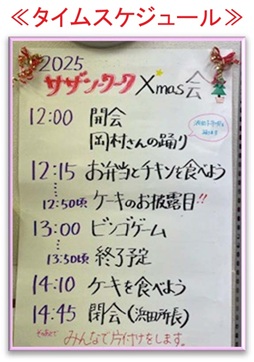 ≪タイムスケジュール≫
2025
サザンワーク Xmas会
12:00 開会
岡村さんの踊り
12:15 お弁当とチキンを食べよう
12:50頃 ケーキのお披露目!!
13:00 ビンゴゲーム
13:50頃 終了予定
14:10 ケーキを食べよう
14:45 閉会(浜田所長)
みんなで片付けをします。